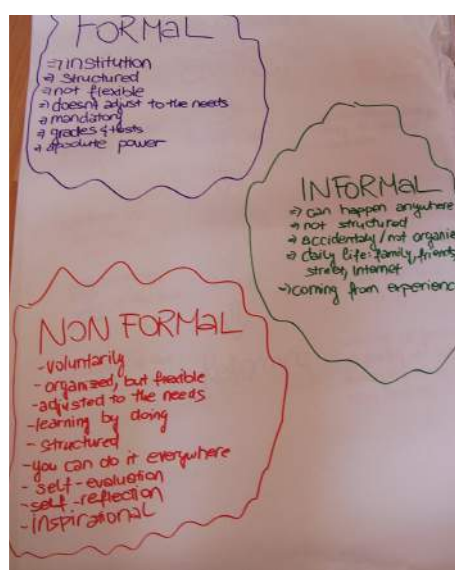 FORMAL
⇒ institution
⇒ structured
⇒ not flexible
⇒ doesn't adjust to the needs
⇒ mandatory
⇒ grades & tests
⇒ apsolute power
INFORMAL
⇒ can happen anywhere
⇒ not structured
⇒ accidentaly/not organie
⇒ daily life: family, friends,
street, Internet
⇒ coming from experienc
NON FORMAL
- voluntarily
- organized, but flexible
- adjusted to the needs
- learning by doing
- structured
- you can do it everywhere
- self-evaluation
- self-reflection
- inspirational